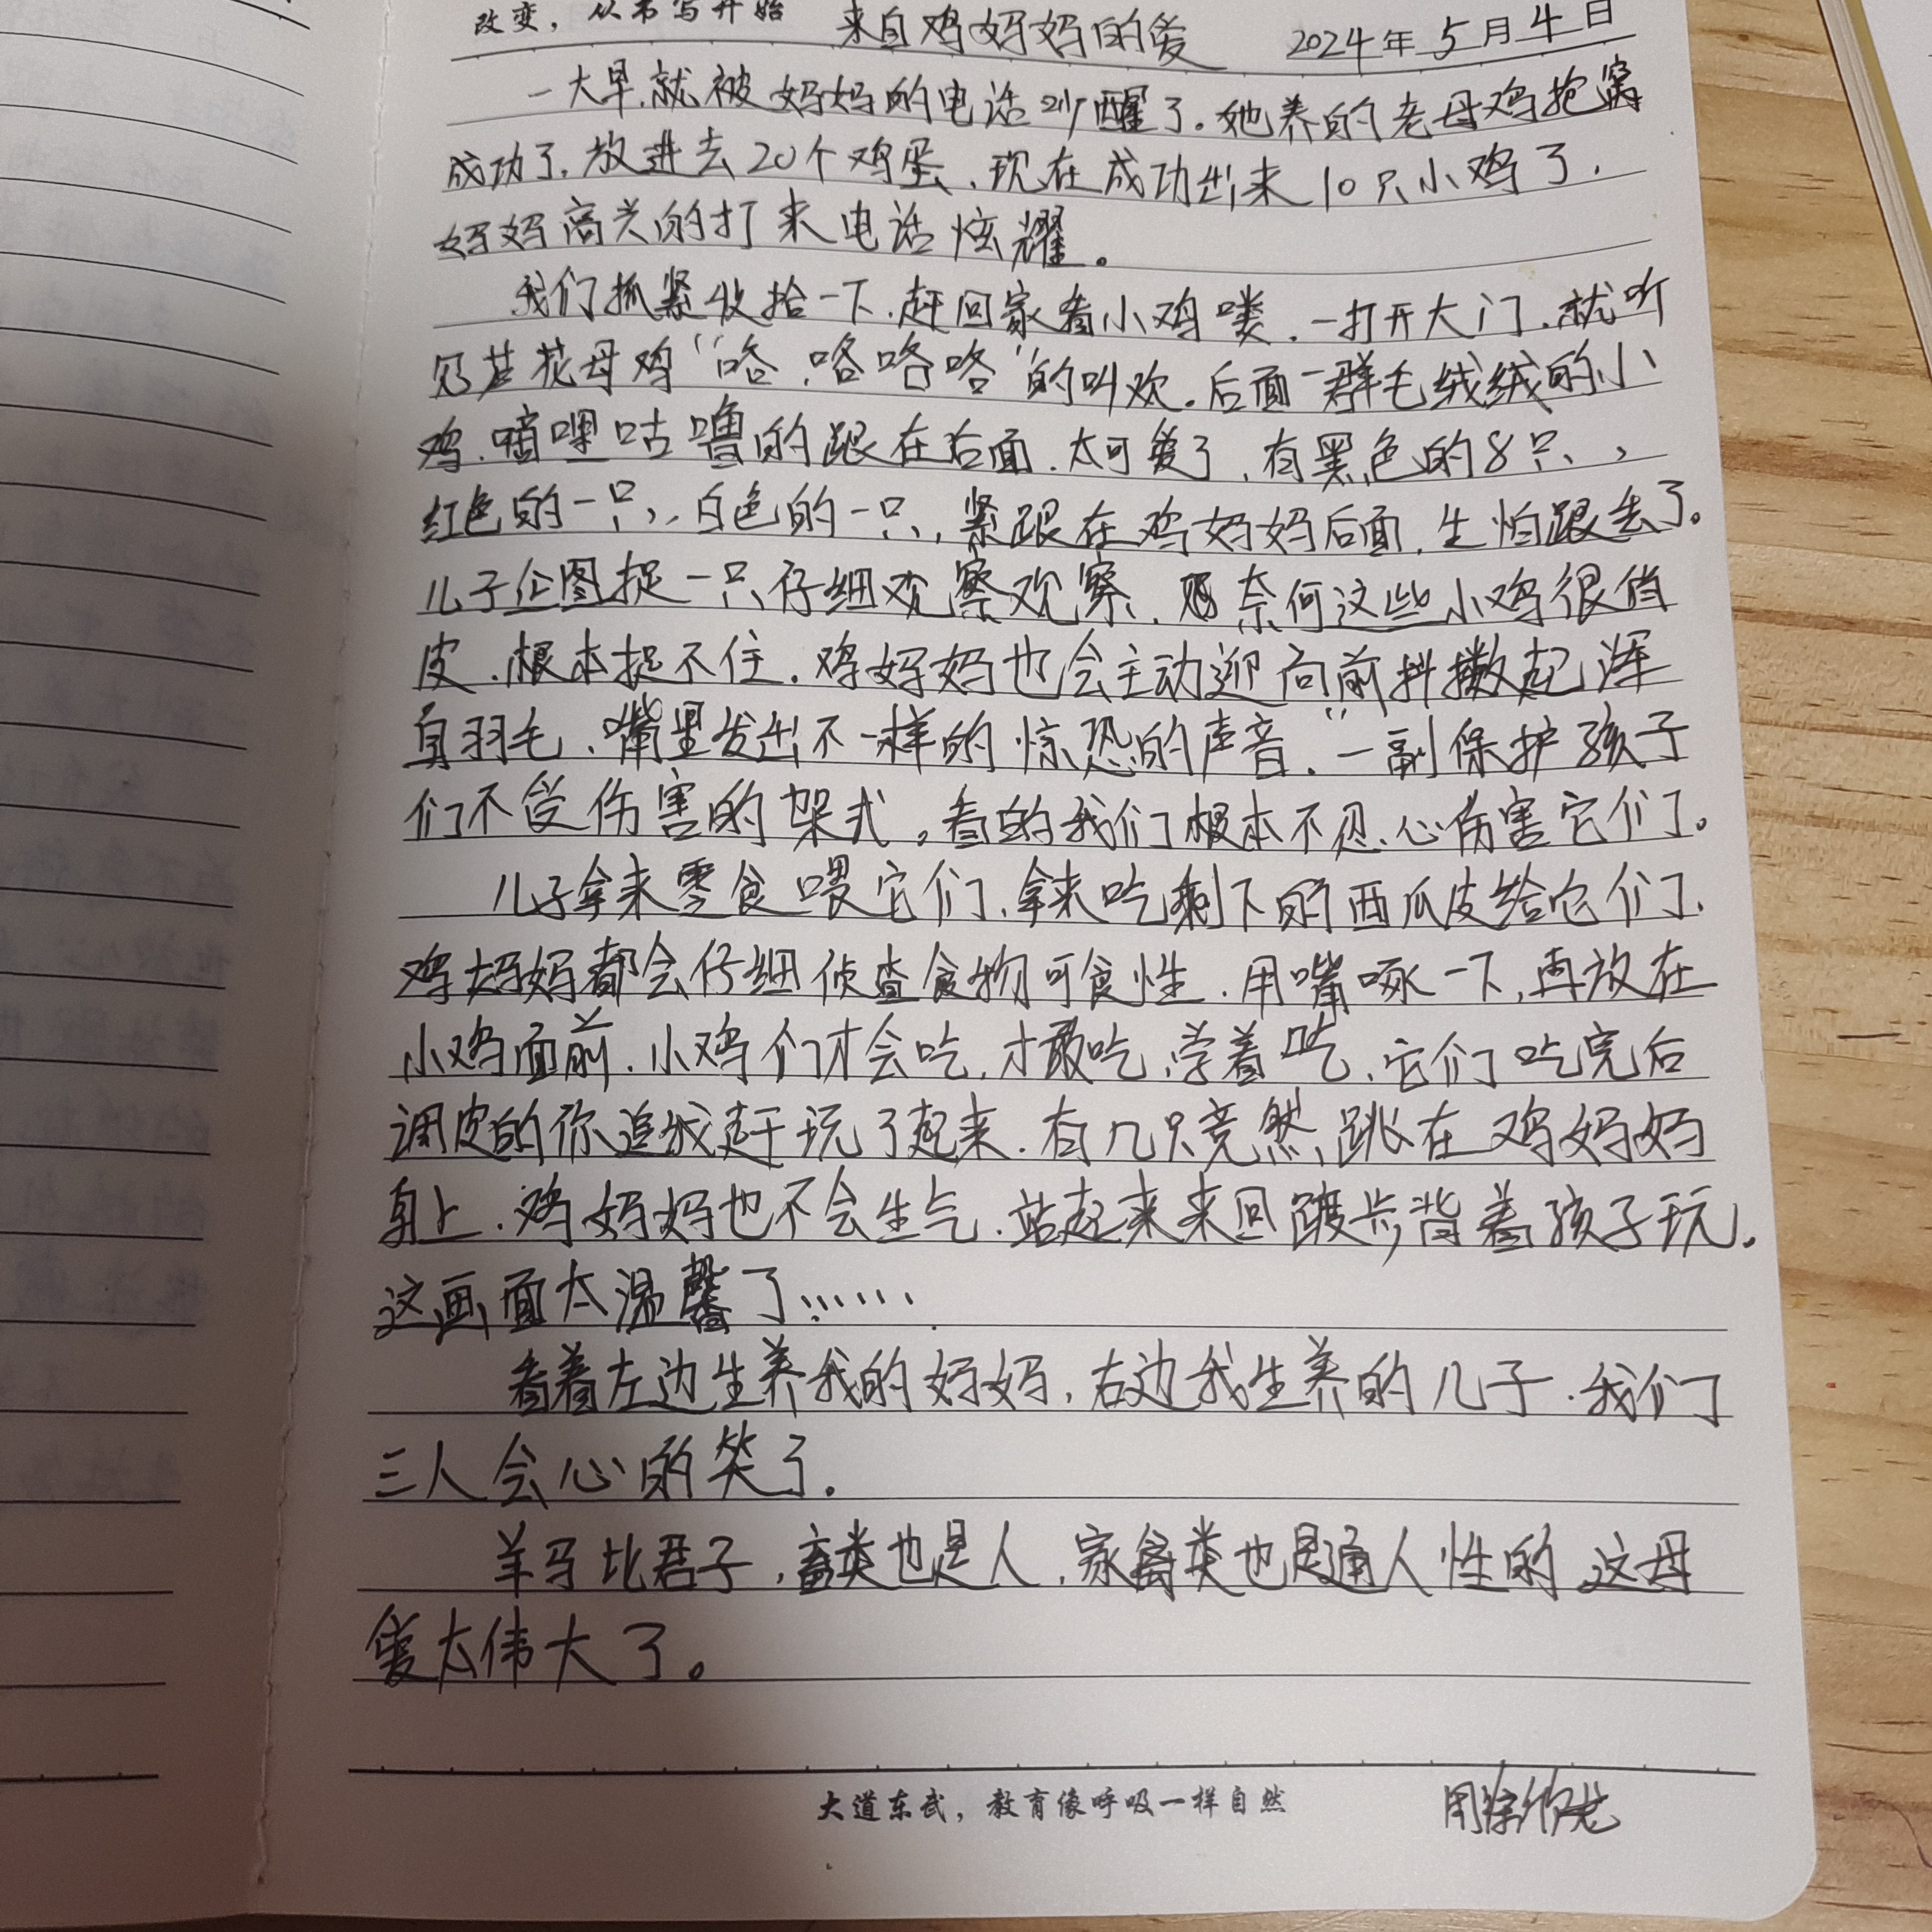 改变，从书写开始 来自鸡妈妈的爱 2024年5月4日
一大早,就被妈妈的电话吵醒了。她养的老母鸡抱窝
成功了,放进去20个鸡蛋,现在成功出来10只小鸡了,
妈妈高兴的打来电话炫耀。
我们抓紧收拾一下,赶回家看小鸡喽,一打开大门,就听
见芦花母鸡“咯,咯咯咯”的叫欢。后面一群毛绒绒的小
鸡,嘀哩咕噜的跟在后面,太可爱了,有黑色的8只,
红色的一只,白色的一只,紧跟在鸡妈妈后面,生怕跟丢了。
儿子企图捉一只仔细观察观察,奈何这些小鸡很俏
皮,根本捉不住,鸡妈妈也会主动迎向前抖擞起浑
身羽毛,嘴里发出不一样的惊恐的声音,一副保护孩子
们不受伤害的架式,看的我们根本不忍心伤害它们。
儿子拿来零食喂它们,拿来吃剩下的西瓜皮给它们,
鸡妈妈都会仔细侦查食物可食性,用嘴啄一下,再放在
小鸡面前,小鸡们才会吃,才敢吃,学着吃,它们吃完后
调皮的你追我赶玩了起来,有几只竟然跳在鸡妈妈
身上,鸡妈妈也不会生气,站起来来回踱步,背着孩子玩。
这画面太温馨了……
看着左边生养我的妈妈,右边我生养的儿子,我们
三人会心的笑了。
羊马比君子,畜类也是人,家禽类也是通人性的 这母
爱太伟大了。
大道东武，教育像呼吸一样自然